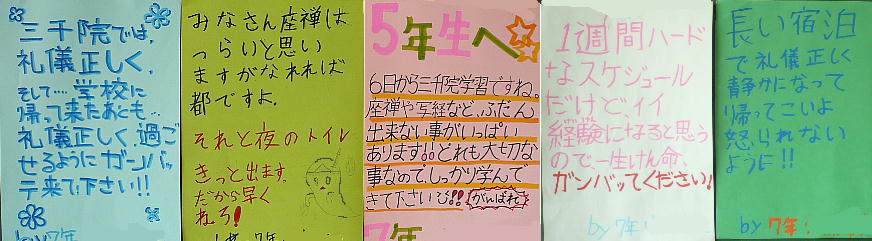 三千院では、
礼儀正しく、
そして…学校に
帰って来たあとも…
礼儀正しく過ご
せるようにガンバッ
テ来て下さい!!
by7年
みなさん座禅は
つらいと思い
ますがなれれば
都ですよ.
それと夜のトイレ
きっと出ます.
だから早く
ねろ!
5年生へ
6日から三千院学習ですね。
座禅や写経など、ふだん
出来ない事がいっぱい
あります!!どれも大切な
事なのでしっかり学んで
きて下さい!!
がんばれ
7年
1週間ハード
なスケジュール
だけど、イイ
経験になると思う
ので一生けん命、
ガンバッてください!
by 7年:
長い宿泊
で礼儀正しく
静かになって
帰ってこいよ
怒られない
ように!!
by 7年: